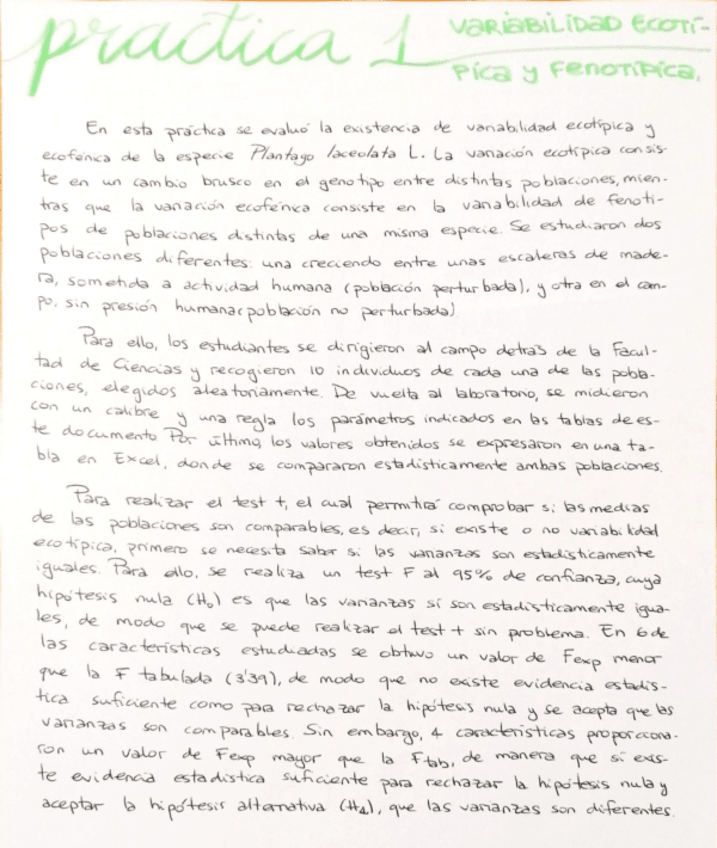 practica 1
VARIABILIDAD ECOTÍ-
PICA Y FENOTÍPICA.
En esta práctica se evaluó la existencia de variabilidad ecotípica y
ecofénica de la especie Plantago laceolata L. La variación ecotípica consis-
te en un cambio brusco en el genotipo entre distintas poblaciones, mien-
tras que la variación ecofénica consiste en la variabilidad de fenoti-
pos de poblaciones distintas de una misma especie. Se estudiaron dos
poblaciones diferentes: una creciendo entre unas escaleras de made-
ra, sometida a actividad humana (población perturbada), y otra en el cam-
po, sin presión humana (población no perturbada).
Para ello, los estudiantes se dirigieron al campo detrás de la Facul-
tad de Ciencias y recogieron 10 individuos de cada una de las pobla-
ciones, elegidos aleatoriamente. De vuelta al laboratorio, se midieron
con un calibre y una regla los parámetros indicados en las tablas de es-
te documento. Por último, los valores obtenidos se expresaron en una ta-
bla en Excel, donde se compararon estadísticamente ambas poblaciones.
Para realizar el test t, el cual permitirá comprobar si las medias
de las poblaciones son comparables, es decir, si existe o no variabilidad
ecotípica, primero se necesita saber si las varianzas son estadísticamente
iguales. Para ello, se realiza un test F al 95% de confianza, cuya
hipótesis nula (H₀) es que las varianzas sí son estadísticamente igua-
les, de modo que se puede realizar el test t sin problema. En 6 de
las características estudiadas se obtuvo un valor de Fexp menor
que la F tabulada (3'39), de modo que no existe evidencia estadís-
tica suficiente como para rechazar la hipótesis nula y se acepta que las
varianzas son comparables. Sin embargo, 4 características proporciona-
ron un valor de Fexp mayor que la Ftab, de manera que sí exis-
te evidencia estadística suficiente para rechazar la hipótesis nula y
aceptar la hipótesis alternativa (H₁), que las varianzas son diferentes.